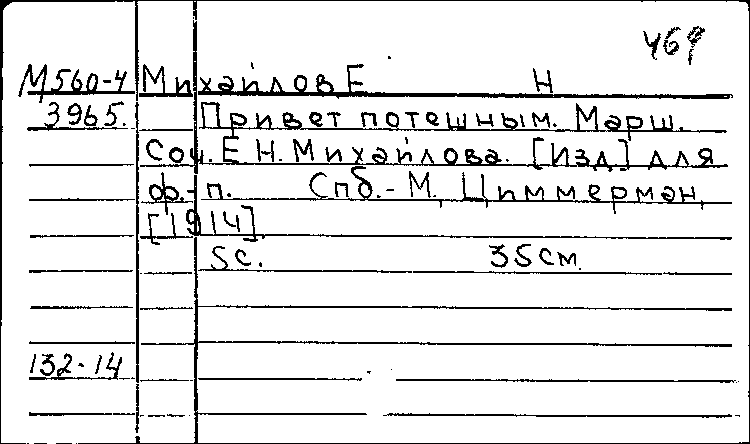 469
М560-4 Михайлов Е Н
3965. Привет потешным. Марш.
Соч. Е.Н. Михайлова. [Изд] для
ф.-п. Спб.-М, Циммерман,
[1914].
5с. 35см
132-14